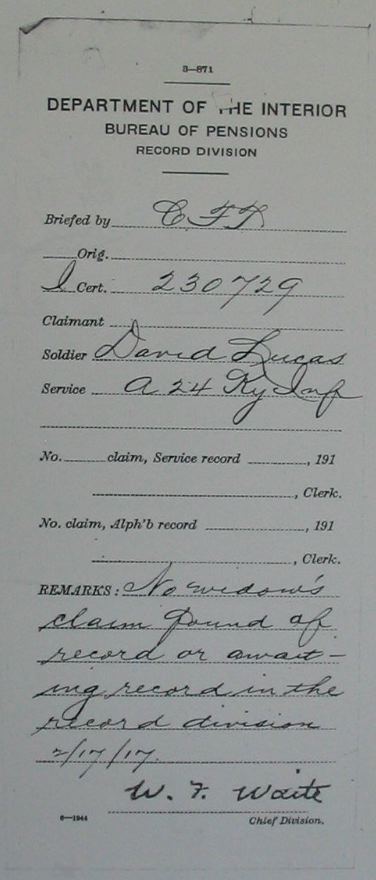 3—871
DEPARTMENT OF THE INTERIOR
BUREAU OF PENSIONS
RECORD DIVISION
Briefed by C F F
Orig.
I Cert. 230729
Claimant
Soldier David Lucas
Service A 24 Ky Inf
No. claim, Service record , 191
, Clerk.
No. claim, Alph'b record , 191
, Clerk.
REMARKS: No widow's
claim found of
record or await–
ing record in the
record division
2/17/17.
W. F. Waite
6—1944 Chief Division.